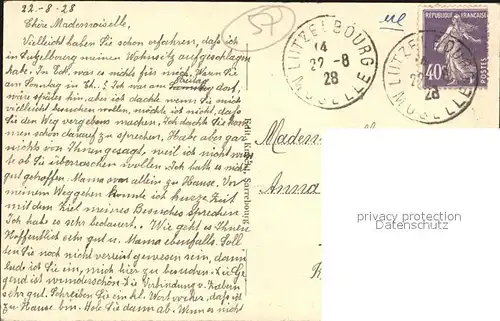 22-8-28
Chère Mademoiselle,
Vielleicht haben Sie schon erfahren, daß ich
in Lützelburg meinen Wohnsitz aufgeschlagen
habe. In war es nichts für mich. Wenn Sie
am Sonntag in Ich war am Freitag dort,
wär später hin, aber ich dachte wenn Sie mich
vielleicht besuchen wollen, möchte ich nicht, daß
Sie den Weg vergebens machen. Ich dachte Sie kom-
men schon darauf zu sprechen. Habe aber gar
nichts von Ihnen gesagt, weil ich nicht
ob Sie überraschen wollen. Ich hatte es nicht
gut getroffen. Mama war allein zu Hause. Vor
meinem Weggehen konnte ich kurze Zeit
mit dem Ziel meines Besuches sprechen.
Ich habe es sehr bedauert. Wie geht es Ihnen?
Hoffentlich sehr gut u. Mama ebenfalls. Soll-
ten Sie noch nicht verreist gewesen sein, dann
lade ich Sie ein, mich hier zu besuchen. Die Ge-
gend ist wunderschön. Die Verbindung v. haben
sehr gut. Schreiben Sie ein kl. Wort vorher, daß ich
zu Hause bin. Hole Sie dann ab. Wenn es nicht
57
LUTZELBOURG
14
22-8
28
MOSELLE
REPUBLIQUE FRANÇAISE
40c
POSTES
LUTZELBOURG
28
MOSELLE
Sarrebourg
Madem
Anna
privacy protection
watermark